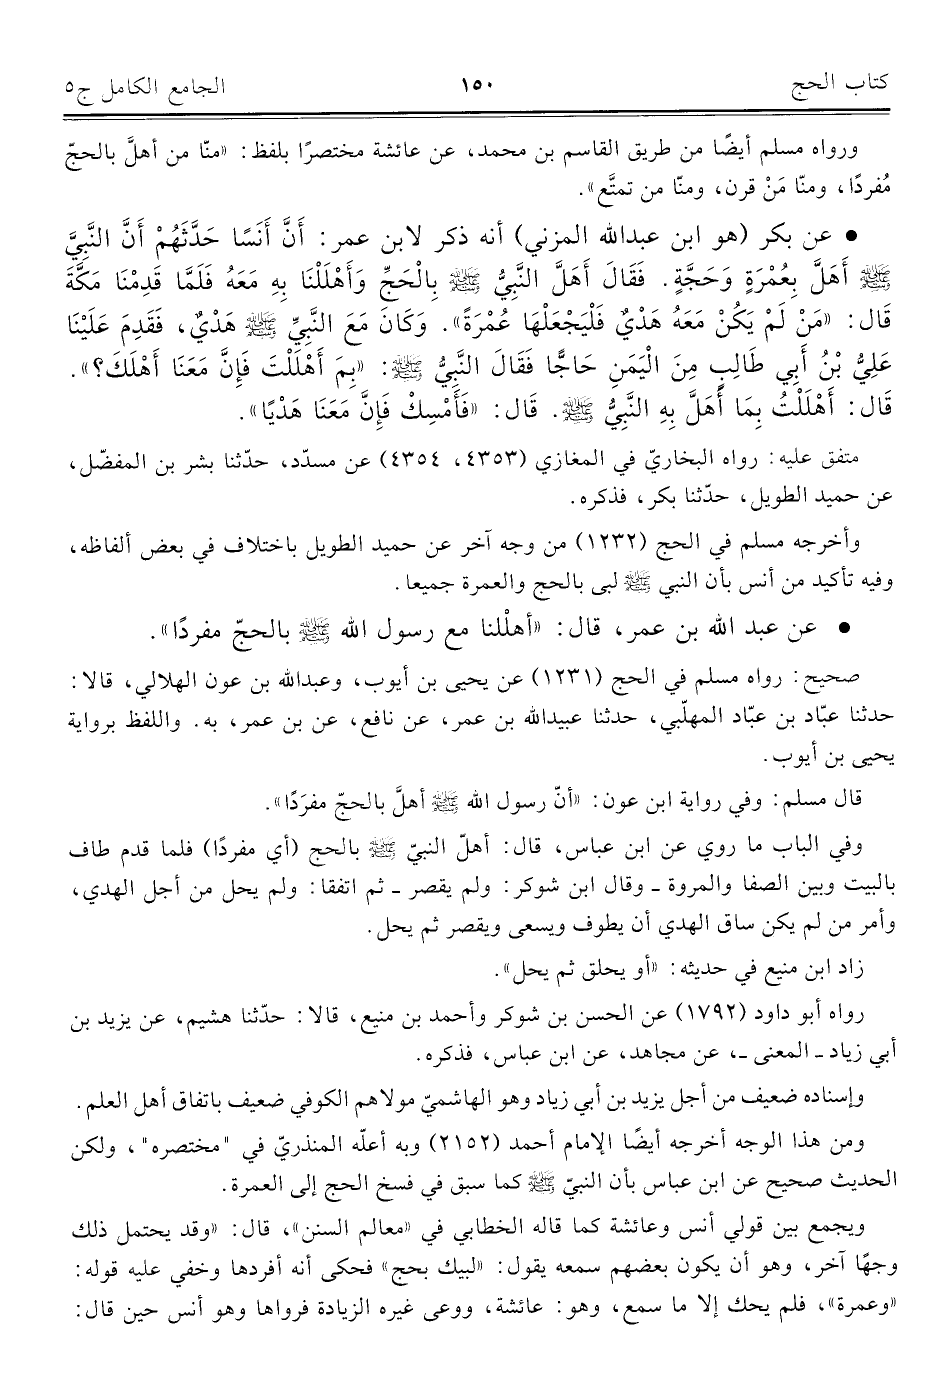 كتاب الحج ١٥٠ الجامع الكامل ج٥
ورواه مسلم أيضًا من طريق القاسم بن محمد، عن عائشة مختصرًا بلفظ: «منّا من أهلَّ بالحجّ
مُفردًا، ومنّا مَنْ قرن، ومنّا من تمتَّع».
● عن بكر (هو ابن عبدالله المزني) أنه ذكر لابن عمر: أَنَّ أَنَسًا حَدَّثَهُمْ أَنَّ النَّبِيَّ
ﷺ أَهَلَّ بِعُمْرَةٍ وَحَجَّةٍ. فَقَالَ أَهَلَّ النَّبِيُّ ﷺ بِالْحَجِّ وَأَهْلَلْنَا بِهِ مَعَهُ فَلَمَّا قَدِمْنَا مَكَّةَ
قَالَ: «مَنْ لَمْ يَكُنْ مَعَهُ هَدْيٌ فَلْيَجْعَلْهَا عُمْرَةً». وَكَانَ مَعَ النَّبِيِّ ﷺ هَدْيٌ، فَقَدِمَ عَلَيْنَا
عَلِيُّ بْنُ أَبِي طَالِبٍ مِنَ الْيَمَنِ حَاجًّا فَقَالَ النَّبِيُّ ﷺ: «بِمَ أَهْلَلْتَ فَإِنَّ مَعَنَا أَهْلَكَ؟».
قَالَ: أَهْلَلْتُ بِمَا أَهَلَّ بِهِ النَّبِيُّ ﷺ. قَالَ: «فَأَمْسِكْ فَإِنَّ مَعَنَا هَدْيًا».
متفق عليه: رواه البخاريّ في المغازي (٤٣٥٣، ٤٣٥٤) عن مسدّد، حدّثنا بشر بن المفضّل،
عن حميد الطويل، حدّثنا بكر، فذكره.
وأخرجه مسلم في الحج (١٢٣٢) من وجه آخر عن حميد الطويل باختلاف في بعض ألفاظه،
وفيه تأكيد من أنس بأن النبي ﷺ لبى بالحج والعمرة جميعا.
● عن عبد الله بن عمر، قال: «أهلْلنا مع رسول الله ﷺ بالحجّ مفردًا».
صحيح: رواه مسلم في الحج (١٢٣١) عن يحيى بن أيوب، وعبدالله بن عون الهلالي، قالا:
حدثنا عبّاد بن عبّاد المهلّبي، حدثنا عبيدالله بن عمر، عن نافع، عن بن عمر، به. واللفظ برواية
يحيى بن أيوب.
قال مسلم: وفي رواية ابن عون: «أنّ رسول الله ﷺ أهلَّ بالحجّ مفرَدًا».
وفي الباب ما روي عن ابن عباس، قال: أهلّ النبيّ ﷺ بالحج (أي مفردًا) فلما قدم طاف
بالبيت وبين الصفا والمروة ـ وقال ابن شوكر: ولم يقصر ـ ثم اتفقا: ولم يحل من أجل الهدي،
وأمر من لم يكن ساق الهدي أن يطوف ويسعى ويقصر ثم يحل.
زاد ابن منيع في حديثه: «أو يحلق ثم يحل».
رواه أبو داود (١٧٩٢) عن الحسن بن شوكر وأحمد بن منيع، قالا: حدّثنا هشيم، عن يزيد بن
أبي زياد ـ المعنى ـ، عن مجاهد، عن ابن عباس، فذكره.
وإسناده ضعيف من أجل يزيد بن أبي زياد وهو الهاشميّ مولاهم الكوفي ضعيف باتفاق أهل العلم.
ومن هذا الوجه أخرجه أيضًا الإمام أحمد (٢١٥٢) وبه أعلّه المنذريّ في "مختصره"، ولكن
الحديث صحيح عن ابن عباس بأن النبيّ ﷺ كما سبق في فسخ الحج إلى العمرة.
ويجمع بين قولي أنس وعائشة كما قاله الخطابي في «معالم السنن»، قال: «وقد يحتمل ذلك
وجهًا آخر، وهو أن يكون بعضهم سمعه يقول: «لبيك بحج» فحكى أنه أفردها وخفي عليه قوله:
«وعمرة»، فلم يحك إلا ما سمع، وهو: عائشة، ووعى غيره الزيادة فرواها وهو أنس حين قال: